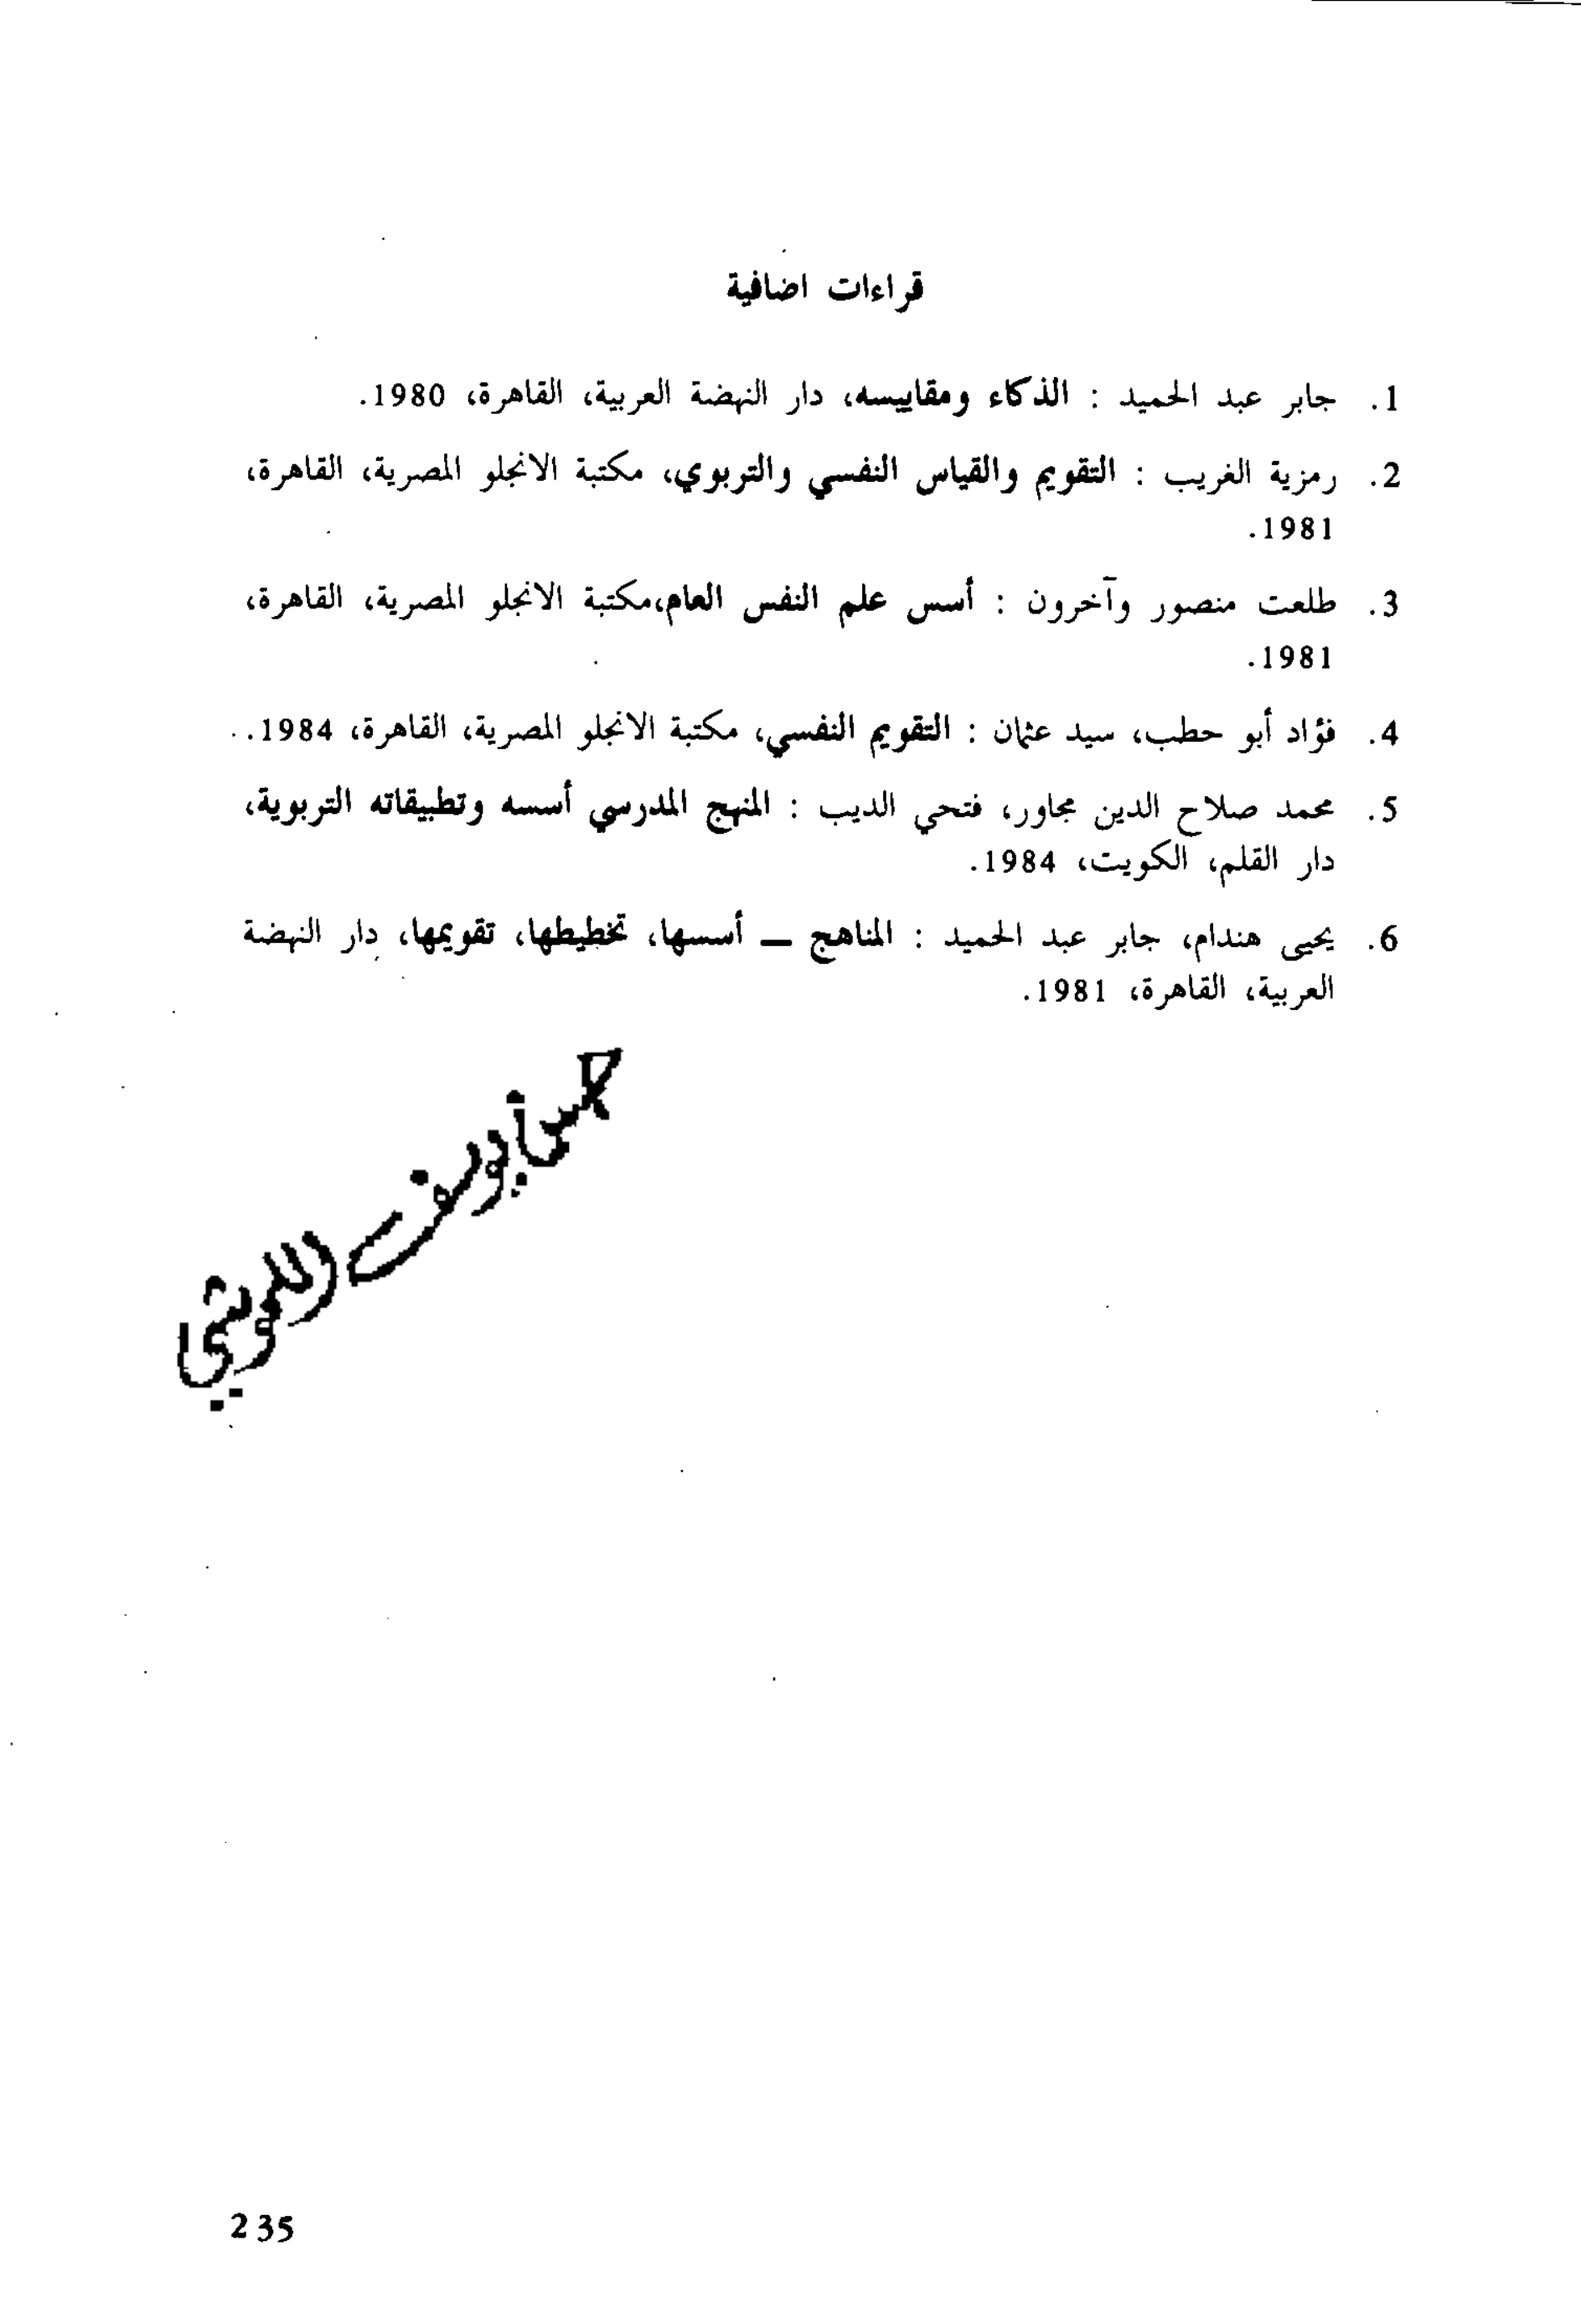 قراءات اضافية
1. جابر عبد الحميد : الذكاء ومقاييسه، دار النهضة العربية، القاهرة، 1980.
2. رمزية الغريب : التقويم والقياس النفسي والتربوي، مكتبة الانجلو المصرية، القاهرة،
1981.
3. طلعت منصور وآخرون : أسس علم النفس العام،مكتبة الانجلو المصرية، القاهرة،
1981.
4. فؤاد أبو حطب، سيد عثمان : التقويم النفسي، مكتبة الانجلو المصرية، القاهرة، 1984.
5. محمد صلاح الدين مجاور، فتحي الديب : المنهج المدرسي أسسه وتطبيقاته التربوية،
دار القلم، الكويت، 1984.
6. يحيى هندام، جابر عبد الحميد : المناهج – أسسها، تخطيطها، تقويمها، دار النهضة
العربية، القاهرة، 1981.
235